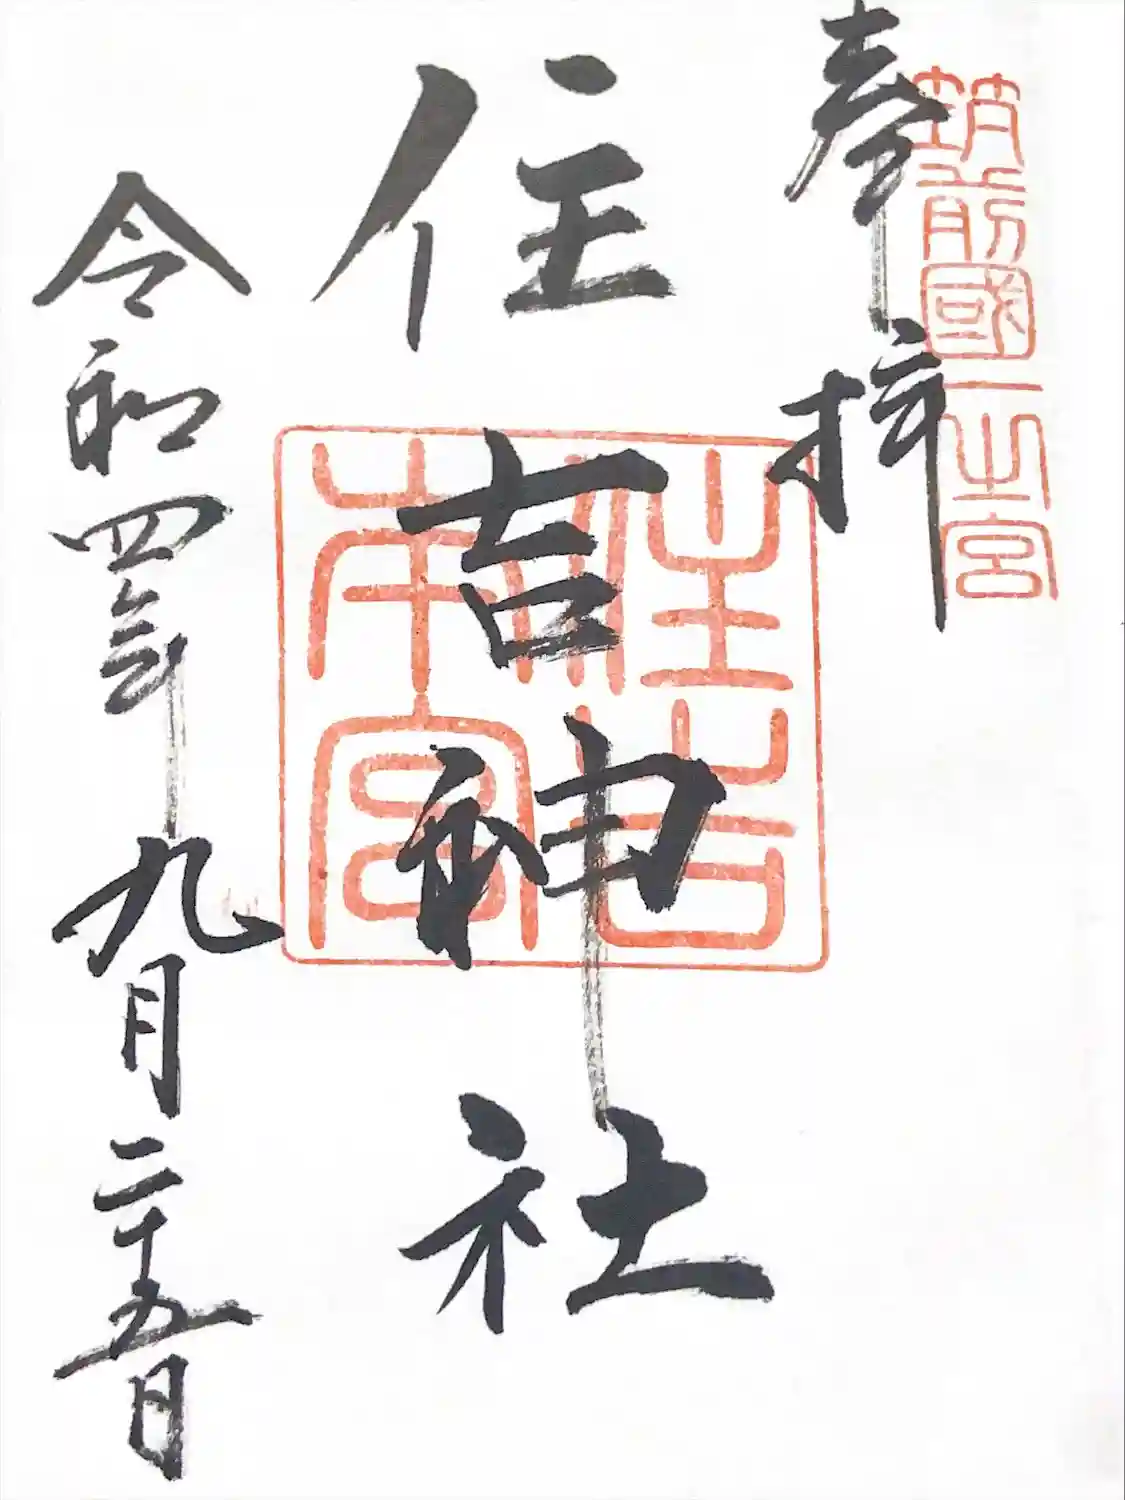 筑前國一之宮
奉拝
住吉神社
住吉本宮
令和四年九月二十五日